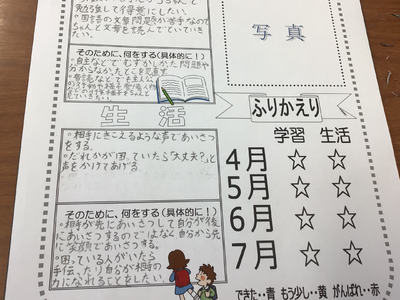 勉強して得意にしたい。
国語の文章問題が苦手なので
ちゃんと文章を読んでといていき
たい。
そのために、何をする(具体的に!)
自主などでむずかしかた問題や
分からなかたところを
写真
生活
相手にきこえるような声であいさつ
をする。
だれかが困っていたら「大丈夫?」と
声をかけてあげる
そのために、何をする(具体的に!)
相手が先にあいさつして自分が後
にあいさつするのではなく自分から先
に笑顔であいさつする。
困っている人がいたら
手伝ったり自分が相手の
力になれることをしたい
ふりかえり
学習 生活
4月 ☆ ☆
5月 ☆ ☆
6月 ☆ ☆
7月 ☆ ☆
できた・・青 もう少し・・黄 がんばれ・・赤